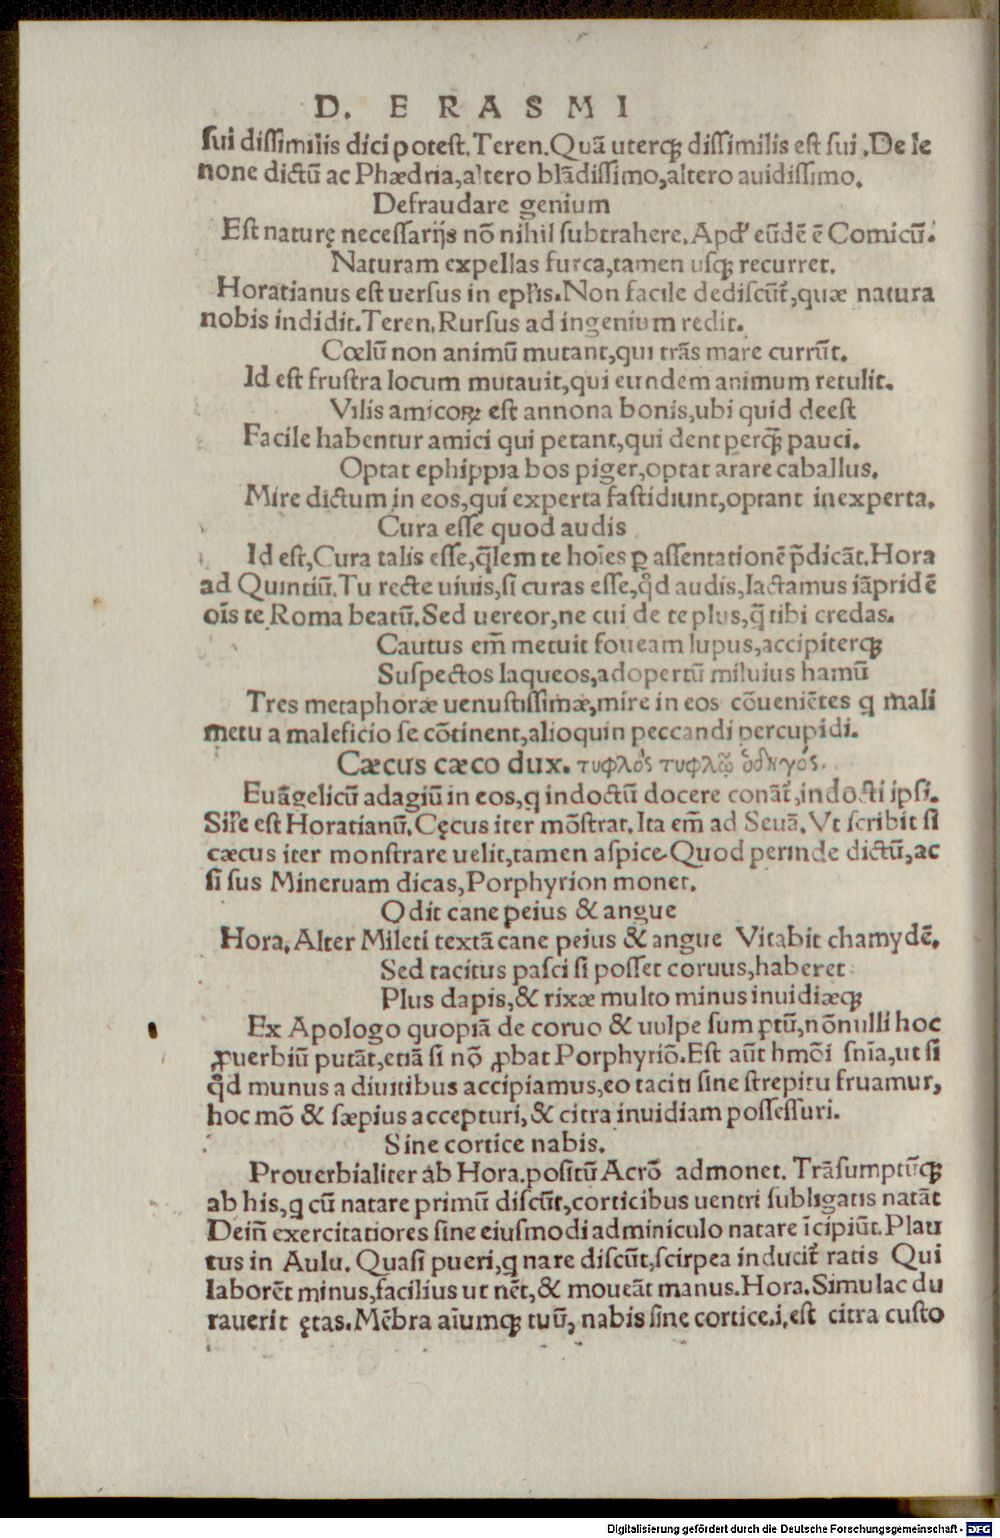 D. ERASMI
sui dissimilis dici potest. Teren. Quā uterq; dissimilis est sui. De le
none dictū ac Phædria, altero blādissimo, altero auidissimo.
Defraudare genium
Est naturę necessarijs nō nihil subtrahere. Apđ eūdē ē Comicū.
Naturam expellas furca, tamen usq; recurret.
Horatianus est uersus in ep̄lis. Non facile dediscūt̃, quæ natura
nobis indidit. Teren. Rursus ad ingenium redit.
Cœlū non animū mutant, qui trās mare currūt.
Id est frustra locum mutauit, qui eundem animum retulit.
Vilis amicoꝝ est annona bonis, ubi quid deest
Facile habentur amici qui petant, qui dent perq̄; pauci.
Optat ephippia bos piger, optat arare caballus.
Mire dictum in eos, qui experta fastidiunt, optant inexperta.
Cura esse quod audis
Id est, Cura talis esse, q̄lem te hoīes ꝑ assentationē p̄dicāt. Hora
ad Quintiū. Tu recte uiuis, si curas esse, qd̛ audis, Iactamus iāpridē
oīs te Roma beatū. Sed uereor, ne cui de te plus, q̄ tibi credas.
Cautus em̄ metuit foueam lupus, accipiterq;
Suspectos laqueos, adopertū miluius hamū
Tres metaphoræ uenustissimæ, mire in eos cōueniētes q mali
metu a maleficio se cōtinent, alioquin peccandi percupidi.
Cæcus cæco dux. τυφλὸς τυφλῷ ὁδηγός.
Euāgelicū adagiū in eos, q indoctū docere conāt̃, indocti ipsi.
Sil̄e est Horatianū. Cęcus iter mōstrat. Ita em̄ ad Seuā. Vt scribit si
cæcus iter monstrare uelit, tamen aspice. Quod perinde dictū, ac
si sus Mineruam dicas, Porphyrion monet.
Odit cane peius & angue
Hora. Alter Mileti textā cane peius & angue Vitabit chamydē.
Sed tacitus pasci si posset coruus, haberet
Plus dapis, & rixæ multo minus inuidiæq;
Ex Apologo quopiā de coruo & uulpe sumptū, nōnulli hoc
ꝓuerbiū putāt, etiā si nō ꝓbat Porphyriō. Est aūt hmōi snīa, ut si
qd̛ munus a diuitibus accipiamus, eo taciti sine strepitu fruamur,
hoc mō & sæpius accepturi, & citra inuidiam possessuri.
Sine cortice nabis.
Prouerbialiter ab Hora. positū Acrō admonet. Trāsumptūq;
ab his, q cū natare primū discūt, corticibus uentri subligatis natāt
Dein̄ exercitatiores sine eiusmodi adminiculo natare īcipiūt. Plau
tus in Aulu. Quasi pueri, q nare discūt, scirpea inducit̃ ratis Qui
laborēt minus, facilius ut nēt, & moueāt manus. Hora. Simulac du
rauerit ętas. Mēbra aīumq; tuū, nabis sine cortice. i. est citra custo
Digitalisierung gefördert durch die Deutsche Forschungsgemeinschaft - DFG